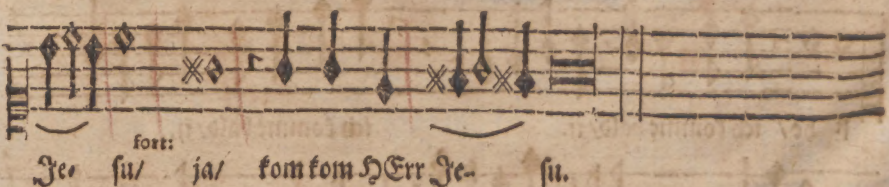 fort:
Je- su/ ja/ kom kom HErr Je- su.